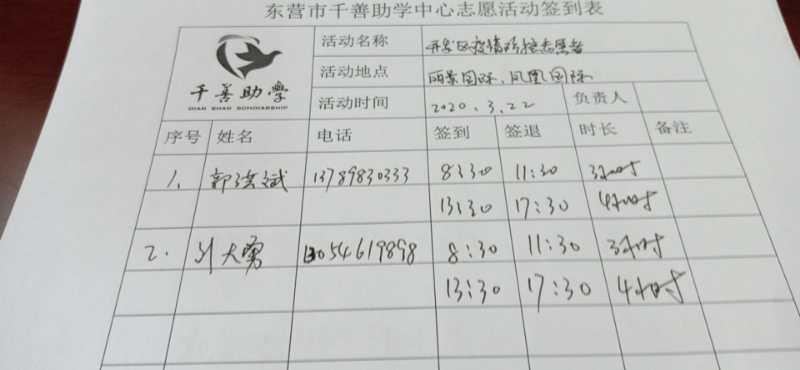 东营市千善助学中心志愿活动签到表
千善助学
QIAN SHAN SCHOLARSHIP
活动名称 开发区疫情防控志愿者
活动地点 丽景国际、凤凰国际
活动时间 2020.3.22 负责人
序号 姓名 电话 签到 签退 时长 备注
1、 郭洪斌 13789830333 8:30 11:30 3小时
13:30 17:30 4小时
2. 刘大勇 13054619898 8:30 11:30 3小时
13:30 17:30 4小时